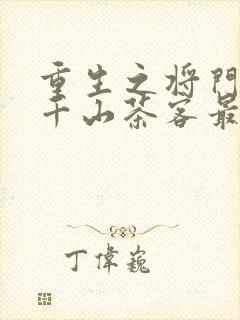 重生之将門
千山茶客最
丁偉巍